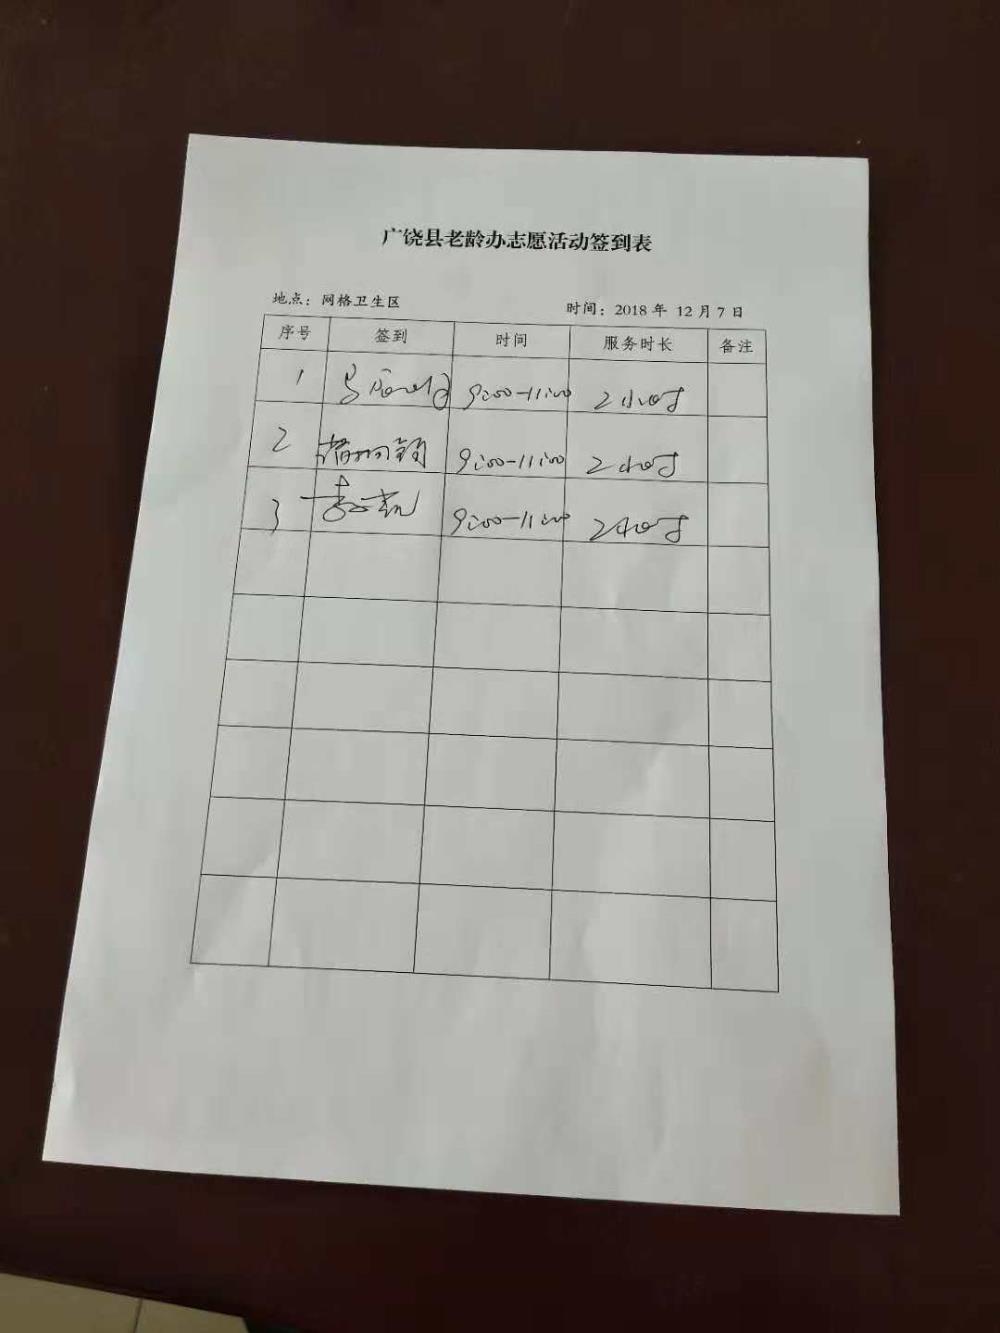 广饶县老龄办志愿活动签到表
地点：网格卫生区 时间：2018 年 12 月 7 日
序号 签到 时间 服务时长 备注
1 9:00-11:00 2小时
2 9:00-11:00 2小时
3 9:00-11:00 2小时